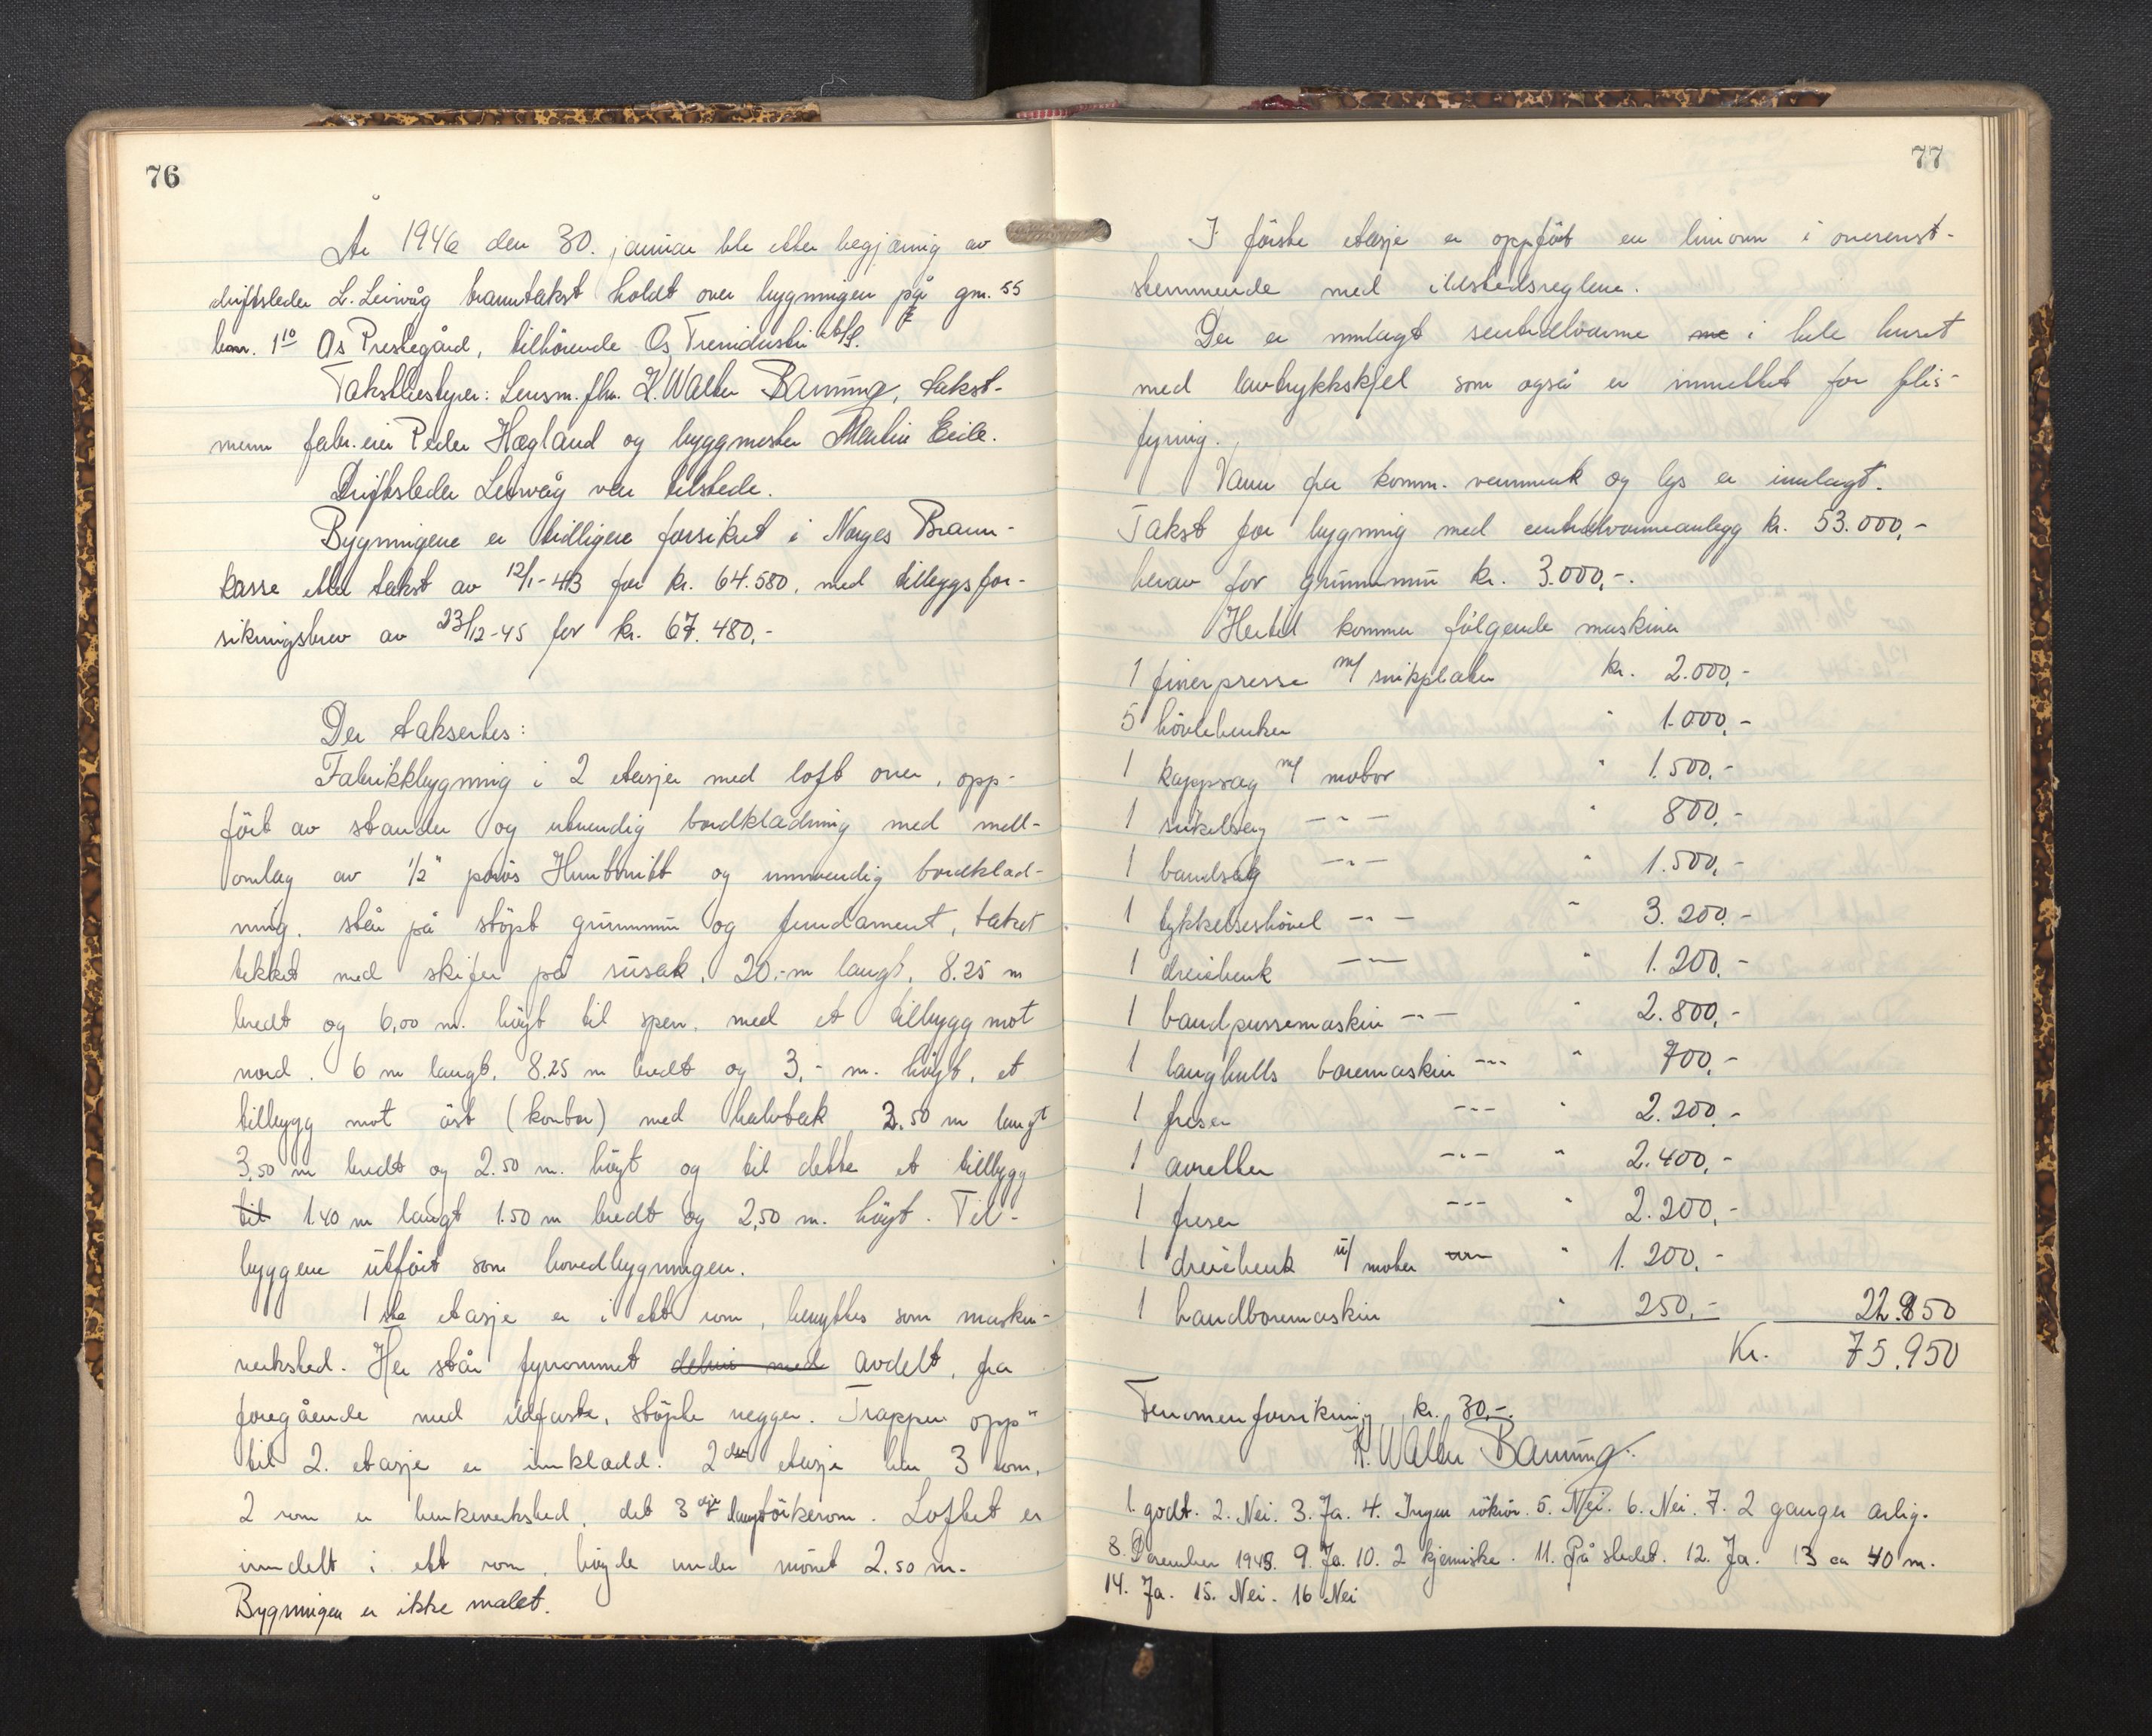 76
År 1946 den 30. januar ble etter begjæring av
driftsleder L. Leirvåg branntakst holdt over bygningen på gnr. 55
bnr. 1¹⁰ Os Prestegård, tilhörende Os Treindustri A/S.
Takstbestyrer: Lensm. flm. K. Walter Banning, takst-
menn fabr. eier Peder Hægland og byggmester Martin Eide.
Driftsleder Leirvåg var tilstede.
Bygningene er tidligere forsikret i Norges Brann-
kasse etter takst av 12/1-43 for kr. 64.580, med tilleggsfor-
sikringsbrev av 23/12-45 for kr. 67.480,-
Der takseres:
Fabrikkbygning i 2 etasjer med loft over, opp-
fört av stander og utvendig bordkledning med mell-
omlag av 1/2" porös Huntonitt og innvendig bordkled-
ning. står på stöpt grunnmur og fundament, taket
tekket med skifer på sutak, 20,-m langt, 8.25 m
bredt og 6,00 m. höyt til sperr, med et tilbygg mot
nord. 6 m langt, 8.25 m bredt og 3,- m. höyt, et
tilbygg mot öst (kontor) med halvtak 3.50 m langt
3,50 m bredt og 2.50 m. höyt og til dette et tilbygg
til 1.40 m langt 1.50 m bredt og 2,50 m. höyt. Til-
byggene utfört som hovedbygningen.
1ste etasje er i ett rom, benyttes som maskin-
verksted. Her står fyrrommet med avdelt, fra
foregående med ildfaste, stöpte vegger. Trappen opp
til 2. etasje er innkledd. 2den etasje har 3 rom,
2 rom er benkeverksted, det 3dje Loftet er
inndelt i ett rom, höyde under mönet 2.50 m.
Bygningen er ikke malet.
77
I förste etasje er oppfört en limovn i overenst-
stemmende med ildstedsreglene.
Der er innlagt sentralvarme me i hele huset
med lavtrykkskjel som også er innrettet for flis-
fyring.
Vann fra komm. vannverk og lys er innlagt.
Takst for bygning med centralvarmeanlegg kr. 53.000,-
herav for grunnmur kr. 3.000,-.
Hertil kommer fölgende maskiner
1 finerpresse m/ sinkplater kr. 2.000,-
5 hövlebenker " 1.000,-
1 kappsag m/ motor " 1.500,-
1 sirkelsag -"- " 800,-
1 bandsag -"- " 1.500,-
1 tykkelseshövel -"- " 3.200,-
1 dreiebenk -"- " 1.200,-
1 bandpussemaskin -"- " 2.800,-
1 langhulls boremaskin -"- " 700,-
1 freser -"- " 2.200,-
1 avretter -"- " 2.400,-
1 freser -"- " 2.200,-
1 dreiebenk u/ motor " 1.200,-
1 handboremaskin " 250,- 22.950
Kr. 75.950
Fenomenforsikring kr. 30,-.
K. Walter Banning.
1. godt. 2. Nei. 3. Ja. 4. Ingen rökrör. 5. Nei. 6. Nei. 7. 2 ganger årlig.
8. Desember 1945. 9. Ja. 10. 2 kjemiske. 11. På stedet. 12. Ja. 13 ca 40 m.
14. Ja. 15. Nei. 16 Nei